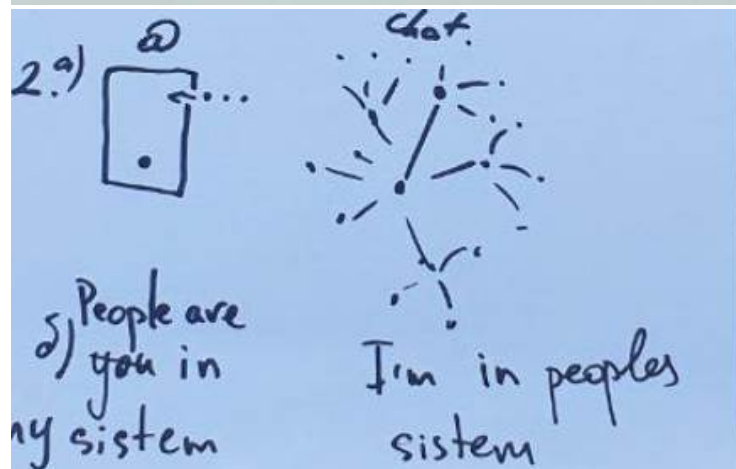 @
2.a)
Chat.
People are
б) you in
my sistem
I'm in peoples
sistem